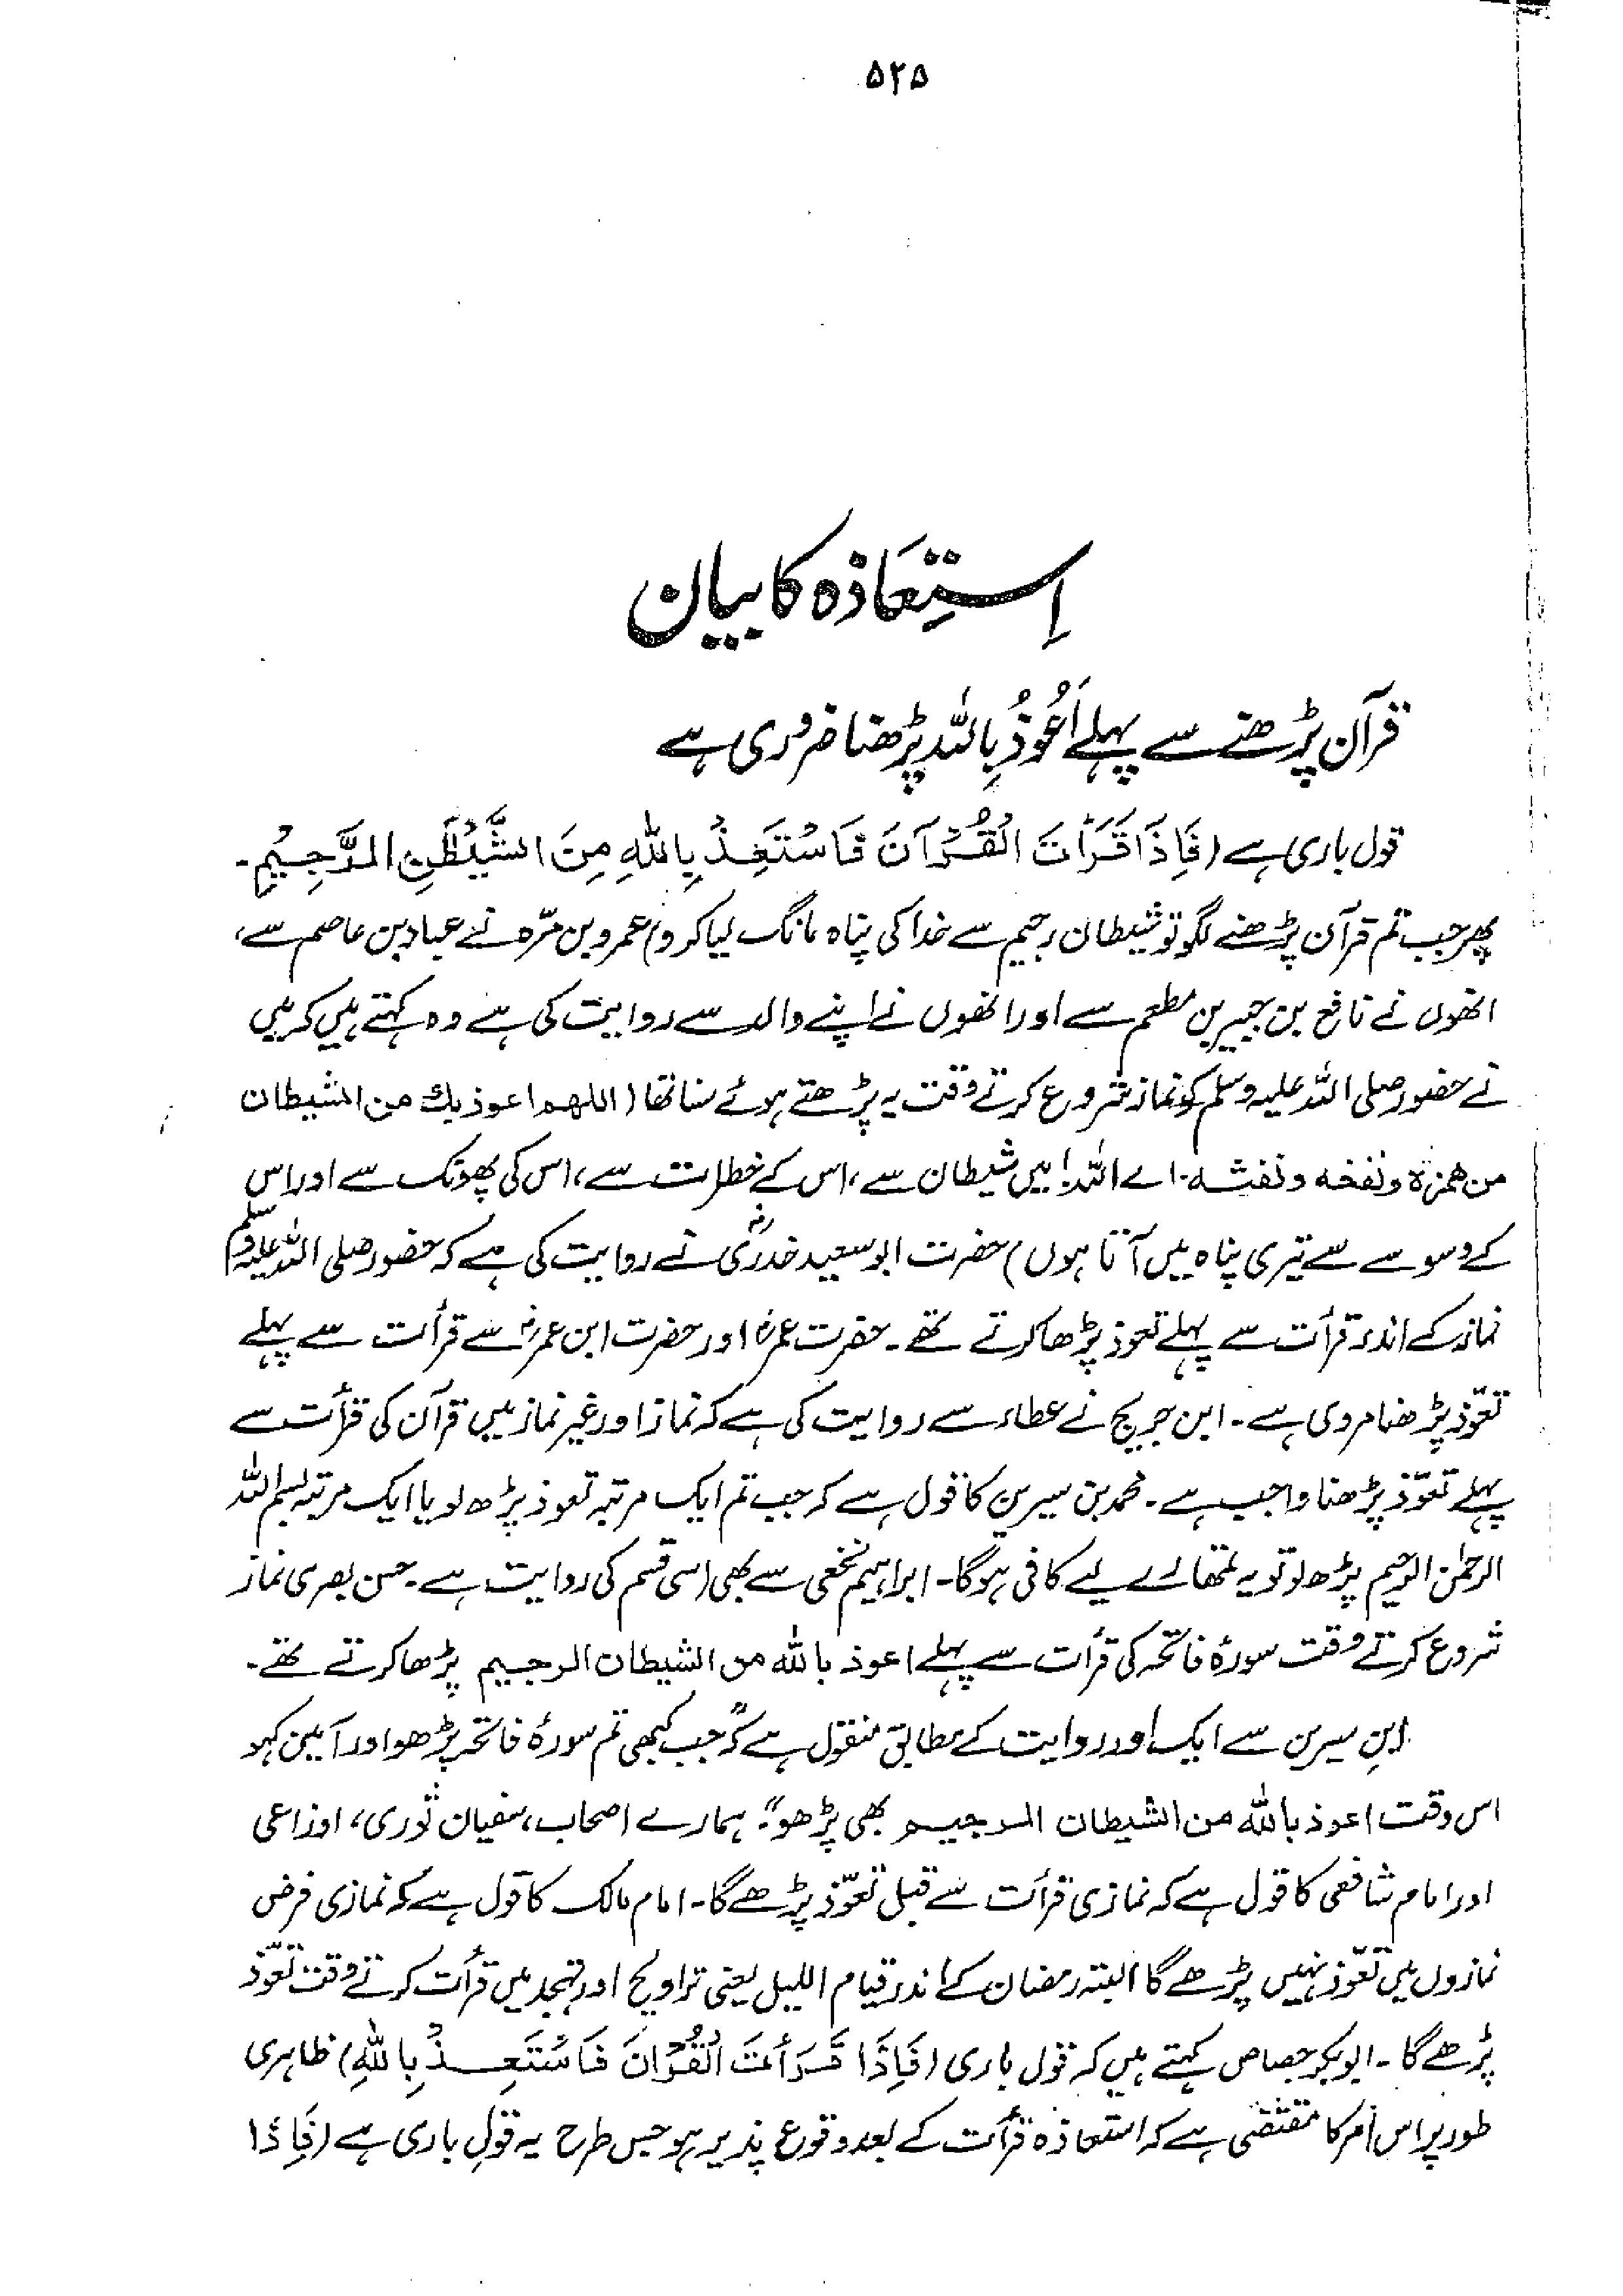 ۵۲۵
اِستِعَاذہ کا بیان
قرآن پڑھتے سے پہلے اَعُوذُ بِاللہ پڑھنا ضروری ہے
قول باری ہے (فَاِذَا قَرَأْتَ الْقُرْآنَ فَاسْتَعِذْ بِاللهِ مِنَ الشَّيْطٰنِ الرَّجِيْمِ۔
پھر جب تم قرآن پڑھنے لگو تو شیطان رجیم سے خدا کی پناہ مانگ لیا کرو) عمرو بن مرّہ نے عباد بن عاصم سے،
انھوں نے نافع بن جبیر بن مطعم سے اور انھوں نے اپنے والد سے روایت کی ہے وہ کہتے ہیں کہ میں
نے حضور صلی اللہ علیہ وسلم کو نماز شروع کرتے وقت یہ پڑھتے ہوئے سنا تھا (اللهم اعوذ بك من الشيطان
من همزة و نفخه و نفثه۔ اے اللہ! میں شیطان سے، اس کے خطرات سے، اس کی پھونک سے اور اس
کے وسوسے سے تیری پناہ میں آتا ہوں) حضرت ابو سعید خدریؓ نے روایت کی ہے کہ حضور صلی اللہ علیہ وسلم
نماز کے اندر قرأت سے پہلے تعوذ پڑھا کرتے تھے۔ حضرت عمرؓ اور حضرت ابن عمرؓ سے قرأت سے پہلے
تعوّذ پڑھنا مروی ہے۔ ابن جریج نے عطاء سے روایت کی ہے کہ نماز اور غیر نماز میں قرآن کی قرأت سے
پہلے تعوّذ پڑھنا واجب ہے۔ محمد بن سیرین کا قول ہے کہ جب تم ایک مرتبہ تعوذ پڑھ لو یا ایک مرتبہ بسم اللہ
الرحمٰن الرحیم پڑھ لو تو یہ تمھارے لیے کافی ہوگا۔ ابراہیم نخعی سے بھی اسی قسم کی روایت ہے۔ حسن بصری نماز
شروع کرتے وقت سورۂ فاتحہ کی قرأت سے پہلے اعوذ بالله من الشيطان الرجيم پڑھا کرتے تھے۔
ابنِ سیرین سے ایک اور روایت کے مطابق منقول ہے کہ "جب کبھی تم سورۂ فاتحہ پڑھو اور آمین کہو
اس وقت اعوذ بالله من الشيطان الرجيم بھی پڑھو"۔ ہمارے اصحاب، سفیان ثوری، اوزاعی
اور امام شافعی کا قول ہے کہ نمازی قرأت سے قبل تعوّذ پڑھے گا۔ امام مالک کا قول ہے کہ نمازی فرض
نمازوں میں تعوّذ نہیں پڑھے گا البتہ رمضان کے اندر قیام اللیل یعنی تراویح اور تہجد میں قرأت کرتے وقت تعوّذ
پڑھے گا۔ ابو بکر جصاص کہتے ہیں کہ قول باری (فَاِذَا قَرَأْتَ الْقُرْاٰنَ فَاسْتَعِذْ بِاللهِ) ظاہری
طور پر اس اَمر کا مقتضی ہے کہ استعاذہ قرأت کے بعد وقوع پذیر ہو جس طرح یہ قولِ باری ہے (فَاِذَا